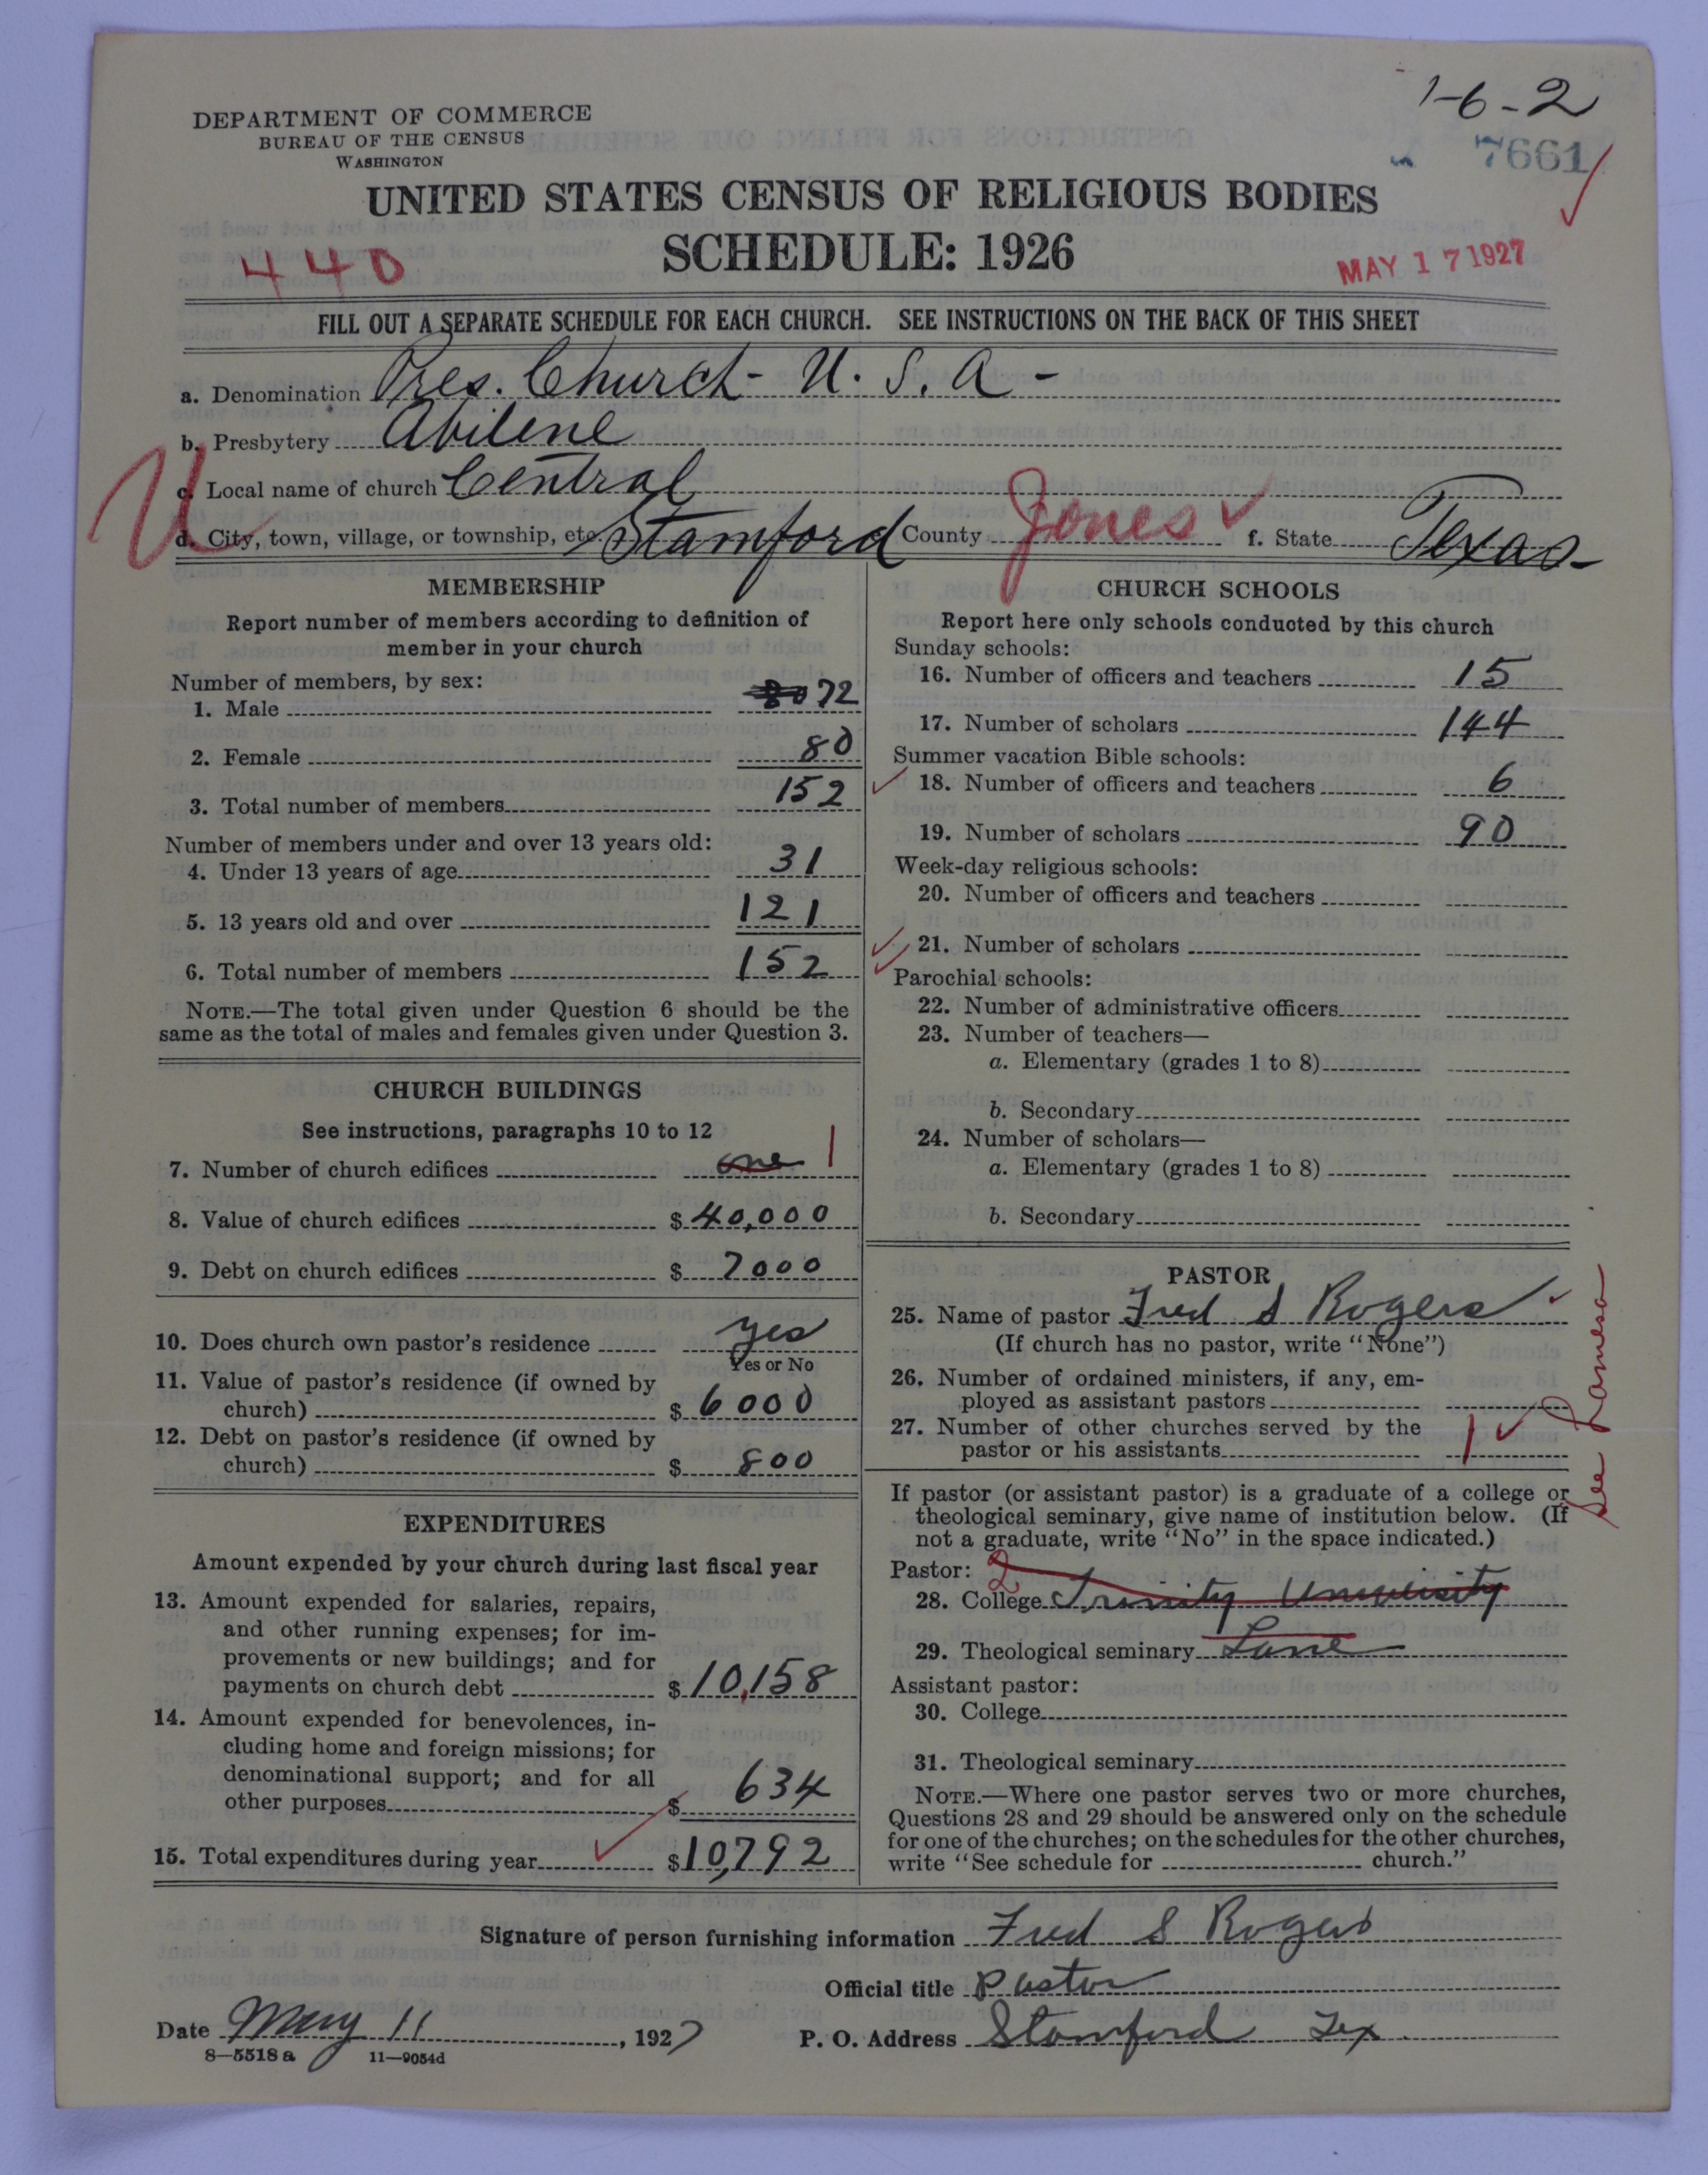 1-6-2
7661
DEPARTMENT OF COMMERCE
BUREAU OF THE CENSUS
WASHINGTON
UNITED STATES CENSUS OF RELIGIOUS BODIES
SCHEDULE: 1926
440
MAY 17 1927
FILL OUT A SEPARATE SCHEDULE FOR EACH CHURCH. SEE INSTRUCTIONS ON THE BACK OF THIS SHEET
a. Denomination Pres. Church - U. S. A -
b. Presbytery Abilene
c. Local name of church Central
d. City, town, village, or township, etc. Stamford County Jones f. State Texas
MEMBERSHIP
Report number of members according to definition of
member in your church
Number of members, by sex:
1. Male 80 72
2. Female 80
3. Total number of members 152
Number of members under and over 13 years old:
4. Under 13 years of age 31
5. 13 years old and over 121
6. Total number of members 152
NOTE.—The total given under Question 6 should be the
same as the total of males and females given under Question 3.
CHURCH BUILDINGS
See instructions, paragraphs 10 to 12
7. Number of church edifices one 1
8. Value of church edifices $ 40,000
9. Debt on church edifices $ 7000
10. Does church own pastor's residence yes
Yes or No
11. Value of pastor's residence (if owned by
church) $ 6000
12. Debt on pastor's residence (if owned by
church) $ 800
EXPENDITURES
Amount expended by your church during last fiscal year
13. Amount expended for salaries, repairs,
and other running expenses; for im-
provements or new buildings; and for
payments on church debt $ 10,158
14. Amount expended for benevolences, in-
cluding home and foreign missions; for
denominational support; and for all
other purposes $ 634
15. Total expenditures during year $ 10,792
CHURCH SCHOOLS
Report here only schools conducted by this church
Sunday schools:
16. Number of officers and teachers 15
17. Number of scholars 144
Summer vacation Bible schools:
18. Number of officers and teachers 6
19. Number of scholars 90
Week-day religious schools:
20. Number of officers and teachers
21. Number of scholars
Parochial schools:
22. Number of administrative officers
23. Number of teachers—
a. Elementary (grades 1 to 8)
b. Secondary
24. Number of scholars—
a. Elementary (grades 1 to 8)
b. Secondary
PASTOR
25. Name of pastor Fred S Rogers
(If church has no pastor, write "None")
26. Number of ordained ministers, if any, em-
ployed as assistant pastors
27. Number of other churches served by the
pastor or his assistants 1
See Lamesa
If pastor (or assistant pastor) is a graduate of a college or
theological seminary, give name of institution below. (If
not a graduate, write "No" in the space indicated.)
Pastor: 2
28. College Trinity University
29. Theological seminary Lane
Assistant pastor:
30. College
31. Theological seminary
NOTE.—Where one pastor serves two or more churches,
Questions 28 and 29 should be answered only on the schedule
for one of the churches; on the schedules for the other churches,
write "See schedule for church."
Signature of person furnishing information Fred S Rogers
Official title Pastor
Date May 11, 1927 P. O. Address Stamford Tex.
8—5518 a 11—9054d